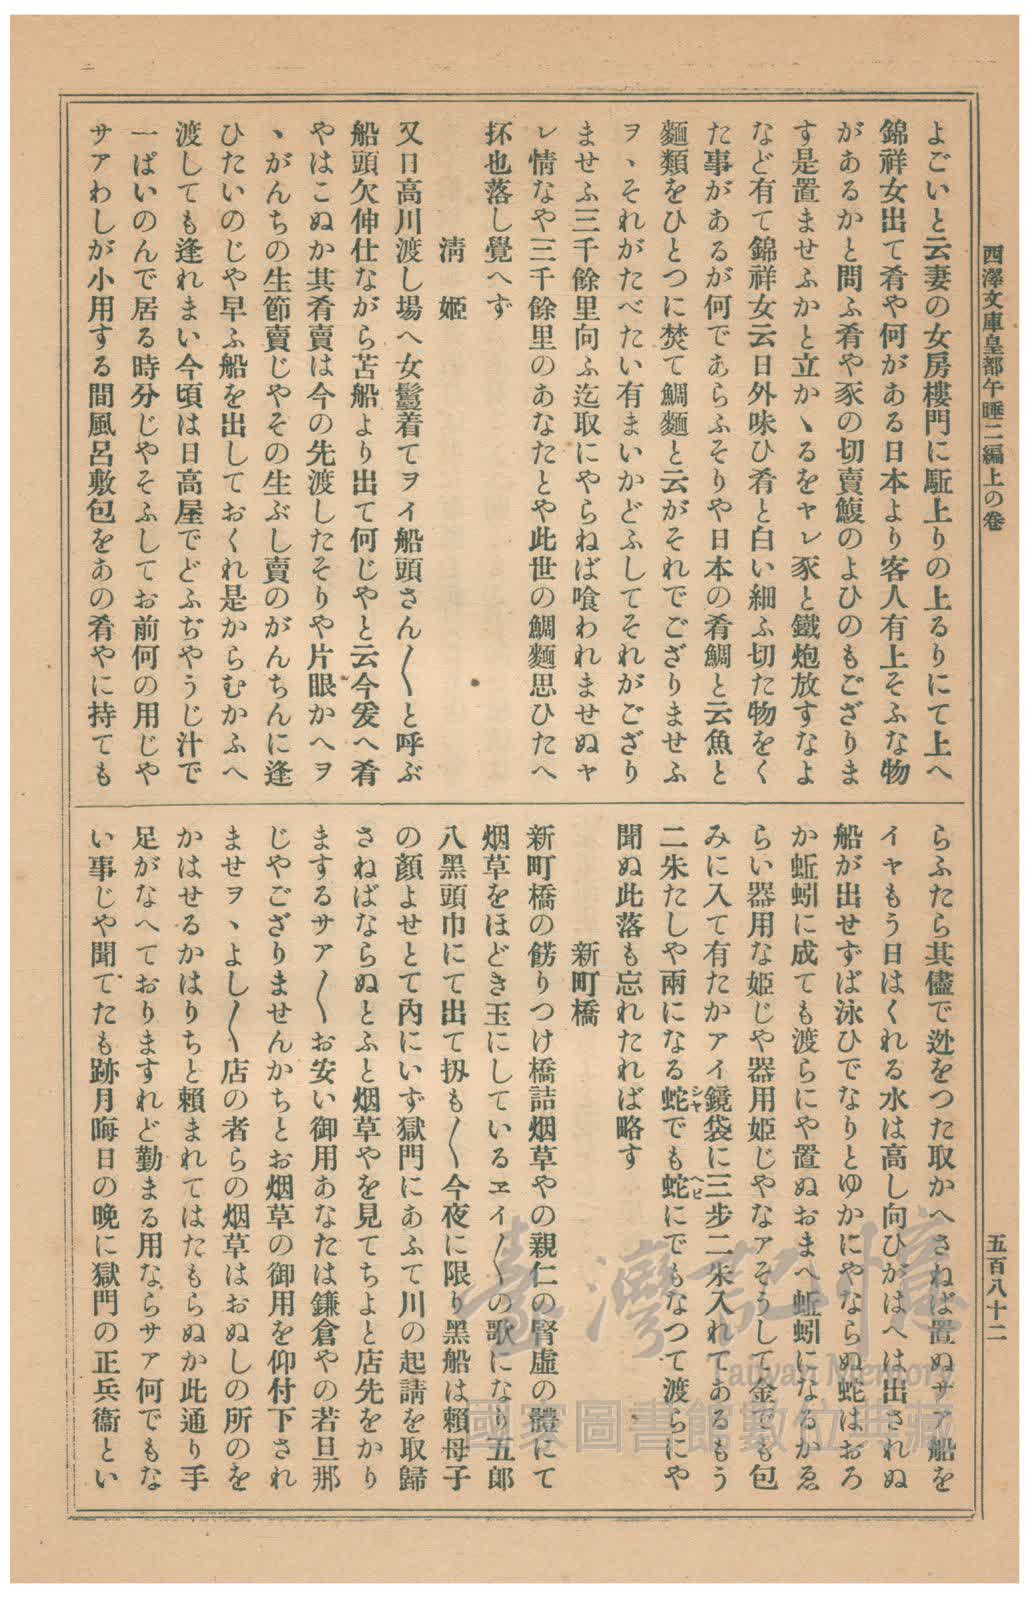 西澤文庫皇都午睡二編上の卷
五百八十二
よごいと云妻の女房樓門に駈上りの上るりにて上へ
錦祥女出て肴や何がある日本より客人有上そふな物
があるかと問ふ肴や豕の切賣鰒のよひのもござりま
す是置ませふかと立かゝるをヤレ豕と鐵炮放すなよ
など有て錦祥女云日外味ひ肴と白い細ふ切た物をく
た事があるが何であらふそりや日本の肴鯛と云魚と
麵類をひとつに焚て鯛麵と云がそれでござりませふ
ヲヽそれがたべたい有まいかどふしてそれがござり
ませふ三千餘里向ふ迄取にやらねば喰われませぬヤ
レ情なや三千餘里のあなたとや此世の鯛麵思ひたへ
抔也落し覺へず
淸姬
又日高川渡し場へ女鬘着てヲイ船頭さん〱と呼ぶ
船頭欠伸仕ながら苫船より出て何じやと云今爰へ肴
やはこぬか其肴賣は今の先渡したそりや片眼かへヲ
ヽがんちの生節賣じやその生ぶし賣のがんちんに逢
ひたいのじや早ふ船を出しておくれ是からむかふへ
渡しても逢れまい今頃は日高屋でどふぢやうじ汁で
一ぱいのんで居る時分じやそふしてお前何の用じや
サアわしが小用する間風呂敷包をあの肴やに持ても
らふたら其儘で迯をつた取かへさねば置ぬサア船を
イヤもう日はくれる水は高し向ひがはへは出されぬ
船が出せずば泳ひでなりとゆかにやならぬ蛇はおろ
か蚯蚓に成ても渡らにや置ぬおまへ蚯蚓になるかゑ
らい器用な姬じや器用姬じやなアそうして金でも包
みに入て有たかアイ鏡袋に三步二朱入れてあるもう
二朱たしや兩になる蛇でも蛇にでもなつて渡らにや
シヤ
ヘビ
聞ぬ此落も忘れたれば略す
新町橋
新町橋の餝りつけ橋詰烟草やの親仁の腎虛の體にて
烟草をほどき玉にしているヱイ〱の歌になり五郞
八黑頭巾にて出て扨も〱今夜に限り黑船は賴母子
の顏よせとて内にいず獄門にあふて川の起請を取歸
さねばならぬとふと烟草やを見てちよと店先をかり
まするサア〱お安い御用あなたは鎌倉やの若旦那
じやござりませんかちとお烟草の御用を仰付下され
ませヲヽよし〱店の者らの烟草はおぬしの所のを
かはせるかはりちと賴まれてはたもらぬか此通り手
足がなへておりますれど勤まる用ならサア何でもな
い事じや聞てたも跡月晦日の晩に獄門の正兵衞とい
臺灣記憶
Taiwan Memory
國家圖書館數位典藏